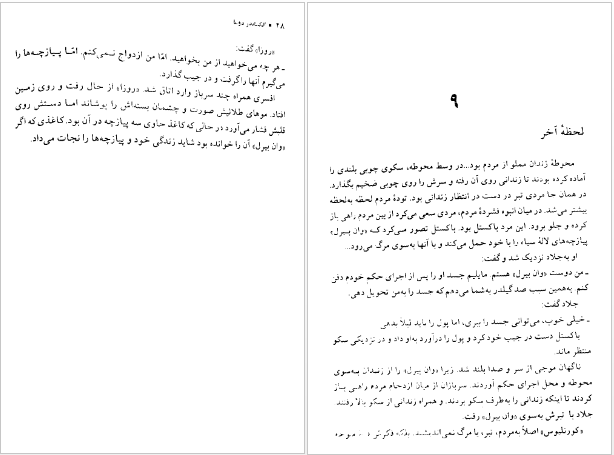 ۲۸ ●
«روزا» گفت:
ـ هر چه می‌خواهید از من بخواهید. امّا من ازدواج نمی‌کنم. امّا پیازچه‌ها را
می‌گیرم آنها را گرفت و در جیب گذارد.
افسری همراه چند سرباز وارد اتاق شد. «روزا» از حال رفت و روی زمین
افتاد. موهای طلائیش صورت و چشمان بسته‌اش را پوشاند اما دستش روی
قلبش فشار می‌آورد در حالی که کاغذ حاوی سه پیازچه در آن بود. کاغذی که اگر
«وان بیرل» آن را خوانده بود شاید زندگی خود و پیازچه‌ها را نجات می‌داد.
۹
لحظهٔ آخر
محوطهٔ زندان مملو از مردم بود... در وسط محوطه، سکوی چوبی بلندی را
آماده کرده بودند تا زندانی روی آن رفته و سرش را روی چوبی ضخیم بگذارد.
در همان جا مردی تبر در دست در انتظار زندانی بود. تودهٔ مردم لحظه به‌لحظه
بیشتر می‌شد. در میان انبوه فشردهٔ مردم، مردی سعی می‌کرد از بین مردم راهی باز
کرده و جلو برود. این مرد باکستل بود. باکستل تصور می‌کرد که «وان بیرل»
پیازچه‌های لالهٔ سیاه را با خود حمل می‌کند و با آنها به‌سوی مرگ می‌رود...
او به‌جلاد نزدیک شد و گفت:
ـ من دوست «وان بیرل» هستم. مایلیم جسد او را پس از اجرای حکم خودم دفن
کنم. به‌همین سبب صد گیلدر به‌شما می‌دهم که جسد را به‌من تحویل دهی.
جلاد گفت:
ـ خیلی خوب، می‌توانی جسد را ببری، اما پول را باید قبلاً بدهی
باکستل دست در جیب خود کرد و پول را درآورد به‌او داد و در نزدیکی سکو
منتظر ماند.
ناگهان موجی از سر و صدا بلند شد. زیرا «وان بیرل» را از زندان به‌سوی
محوطه و محل اجرای حکم آوردند. سربازان از میان ازدحام مردم راهی باز
کردند تا اینکه زندانی را به‌طرف سکو بردند. و همراه زندانی از سکو بالا رفتند
جلاد با تبرش به‌سوی «وان بیرل» رفت.
«کورنلیوس» اصلاً به‌مردم، تبر، یا مرگ نمی‌اندیشید. بلکه فکرش متوجه